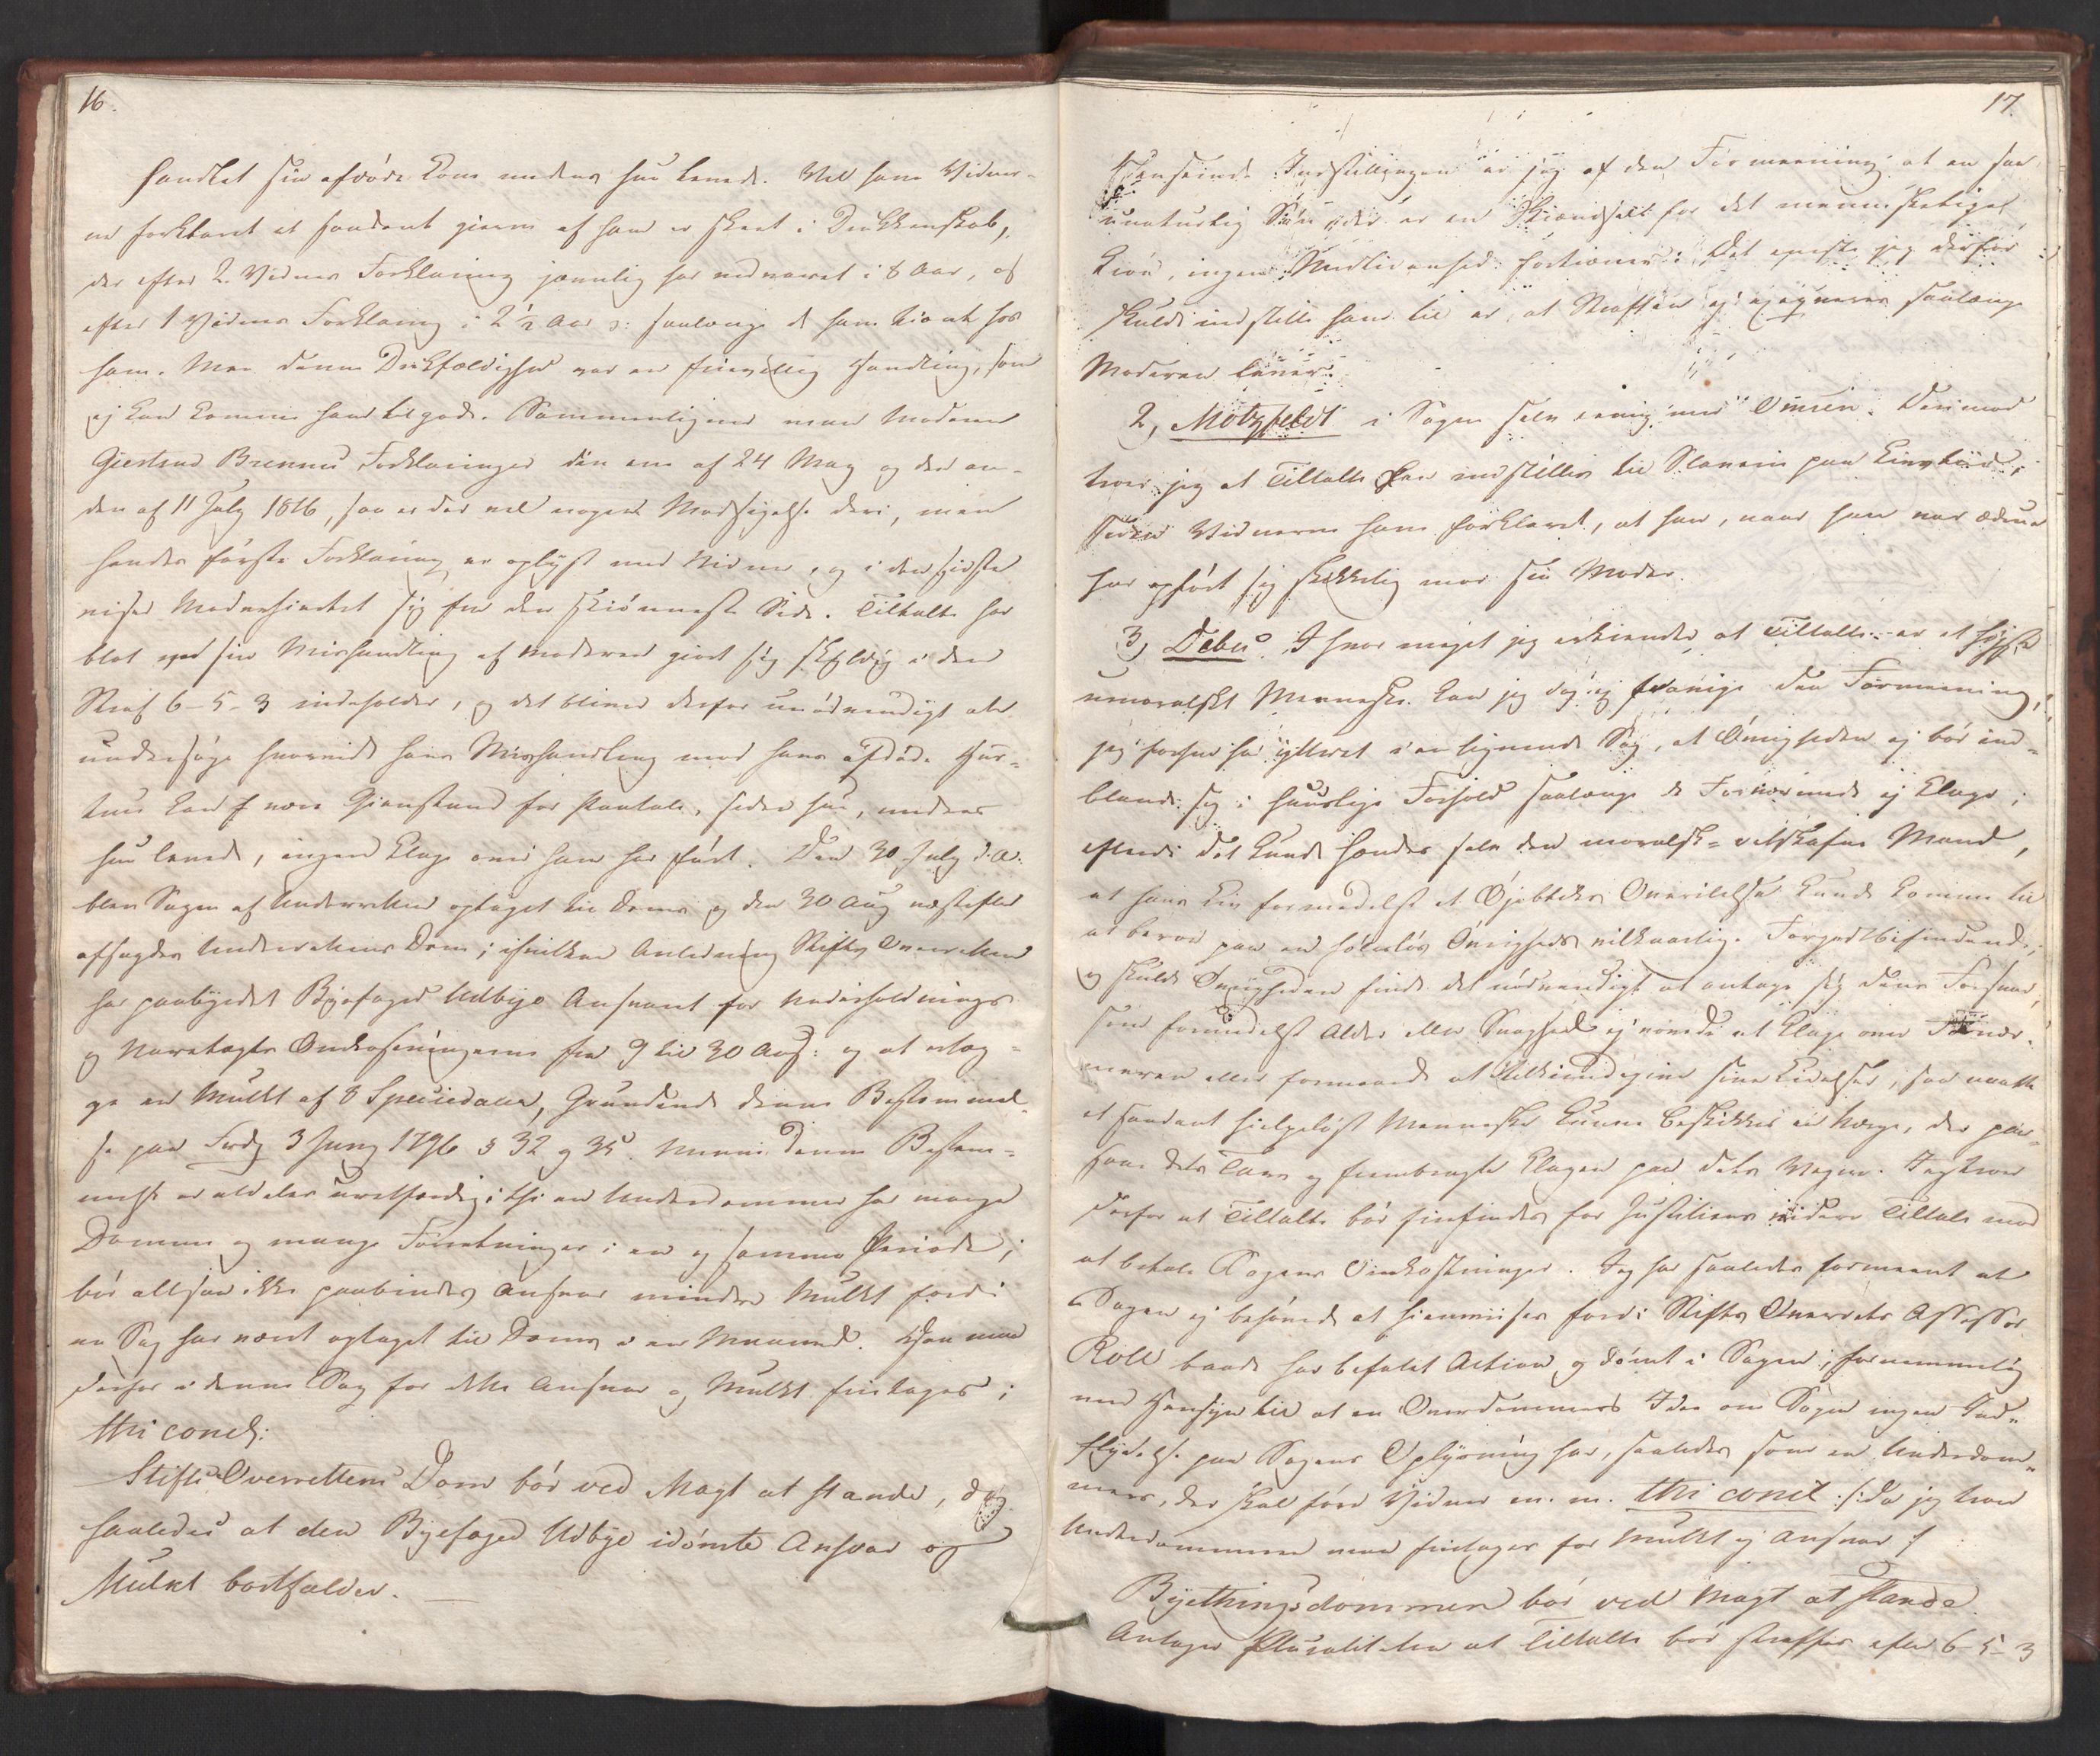 16.
handlet sin afdøde Kone medens hun levede. Vel have Vidner-
ne forklaret at saadant gierne af ham er skeet i Drukkenskab,
der efter 2 Vidners Forklaring jevnlig har vedvaret i 8 Aar, og
efter 1 Vidnes Forklaring i 2½ Aar ɔ: saalænge de have tient hos
ham. Men denne Drikfældighed var en frievillig Handling, som
ej kan komme ham tilgode. Sammenligner man Moderen
Giertrud Brennes Forklaringer den ene af 24 May og den an-
den af 11 July 1816, saa er der vel nogen Modsigelse deri, men
hendes første Forklaring er oplyst med Vidner, og i den sidste
viser Moderhiertet sig fra den skiønneste Side. Tiltalte har
blot ved sin Mishandling af Moderen giort sig skyldig i den
Straf 6-5-3 indeholder, og det bliver derfor unødvendigt at
undersøge hvorvidt hans Mishandling mod hans afdøde Hu-
stru kan være Gienstand for Paatale, siden hun, medens
hun levede, ingen Klage over ham har ført. Den 30 July d. A.
blev Sagen af Underretten optaget til Doms og den 30 Aug næstefter
afsagdes Underrettens Dom; i hvilken Anledning Stifts Overretten
har paabyrdet Byefoged Udbye Ansvaret for Underholdnings
og Varetægts Omkostningerne fra 9 til 30 Aug: og at erlæg-
ge en Mulkt af 8 Speciedaler, grundende denne Bestemmel-
se paa Frdg 3 Juny 1796 § 32 og 35. Denne Bestem-
melse er aldeles uretfærdig; thi en Underdommer har mange
Domme og mange Forretninger i en og samme Periode;
bør altsaa ikke paabindes Ansvar mindre Mulkt fordi
en Sag har været optaget til Doms i en Maaned. Han maa
derfor i denne Sag for dette Ansvar og Mulkt fritages;
thi concl:
Stifts Overrettens Dom bør ved Magt at stande, dog
saaledes at den Byefoged Udbye idømte Ansvar og
Mulkt bortfalder.
17.
Indstillingen er jeg af den Formeening at en saa
unaturlig Søn, der er en Skiændsel for det menneskelige
Kiøn, ingen Medlidenhed fortiener. Det eneste jeg derfor
skulde indstille ham til er, at Straffen ej exeqveres saalænge
Moderen lever.
2, Motzfeldt i Sagen selv eenig med Omsen. Derimod
troer jeg at Tiltalte kan indstilles til Slaverie paa Livstid,
siden Vidnerne have forklaret, at han, naar han var ædrue
har opført sig skikkelig mod sin Moder.
3, Debes. I hvor meget jeg erkiender, at Tiltalte er et høyst
umoralskt Menneske kan jeg dog ej fravige den Formeening,
jeg forhen har yttret i en lignende Sag, at Øvrigheden ej bør ind-
blande sig i huuslige Forhold saalænge de Fornærmede ej klage;
efterdi det kunde hændes selv den moralsk-retskafne Mand,
at hans Liv formedelst et Øjebliks Overilelse kunde komme til
at beroe paa en Øvrigheds vilkaarlig Forgodtbefindende;
og skulde Øvrigheden finde det nødvendigt at antage sig dens Forsvar,
som formedelst Alder eller Svaghed ej vovede at klage over Fornær-
meren eller formaaede at tilkiendegive sine Lidelser, saa maatte
et saadant hielpeløst Menneske kunne beskikkes en Værge, der paa-
saae dets Tarv og frembragte Klagen paa dets Vegne. Jeg troer
derfor at Tiltalte bør friefindes for Justitiens videre Tiltale mod
at betale Sagens Omkostninger. Jeg har saaledes formeent at
Sagen ej behøvede at hiemvises fordi Stifts Overrets Assessor
Roll baade har befalet Action og dømt i Sagen; fornemmelig
med Hensyn til at en Overdommers Idee om Sagen ingen Ind-
flydelse paa Sagens Oplysning har, saaledes som en Underdom-
mers, der skal føre Vidner m. m. thi concl: /: da jeg troer
Underdommeren maa fritages for Mulkt og Ansvar :/
Byethingsdommen bør ved Magt at stande.
Antager Pluraliteten at Tiltalte bør straffes efter 6-5-3